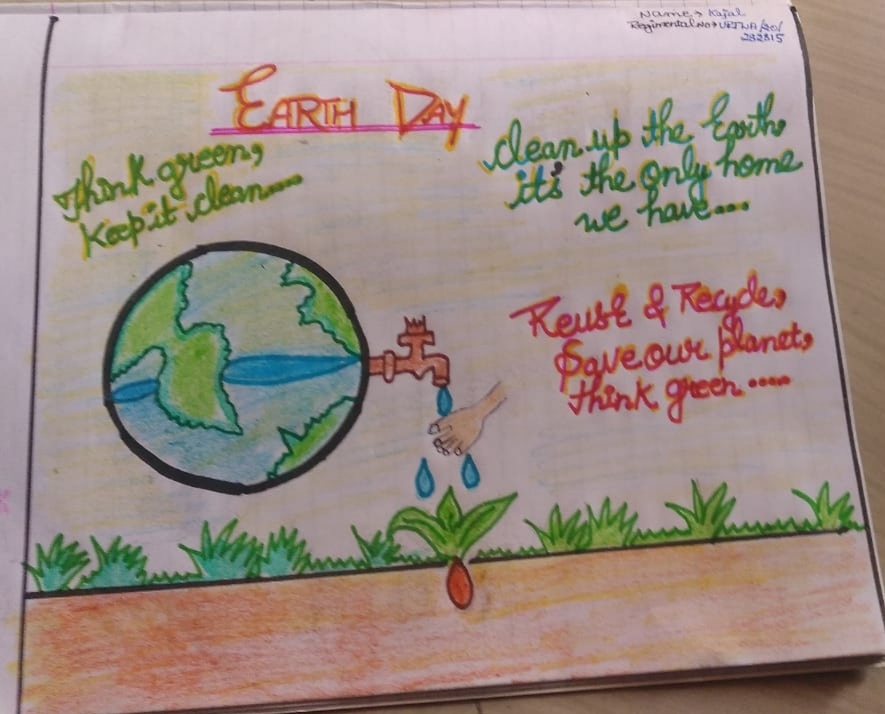 Name → Kajal
Regimental No → UP
282815
EARTH DAY
Think green,
Keep it clean....
Clean up the Earth,
it's the only home
we have....
Reuse & Recycle,
Save our planet,
think green .....